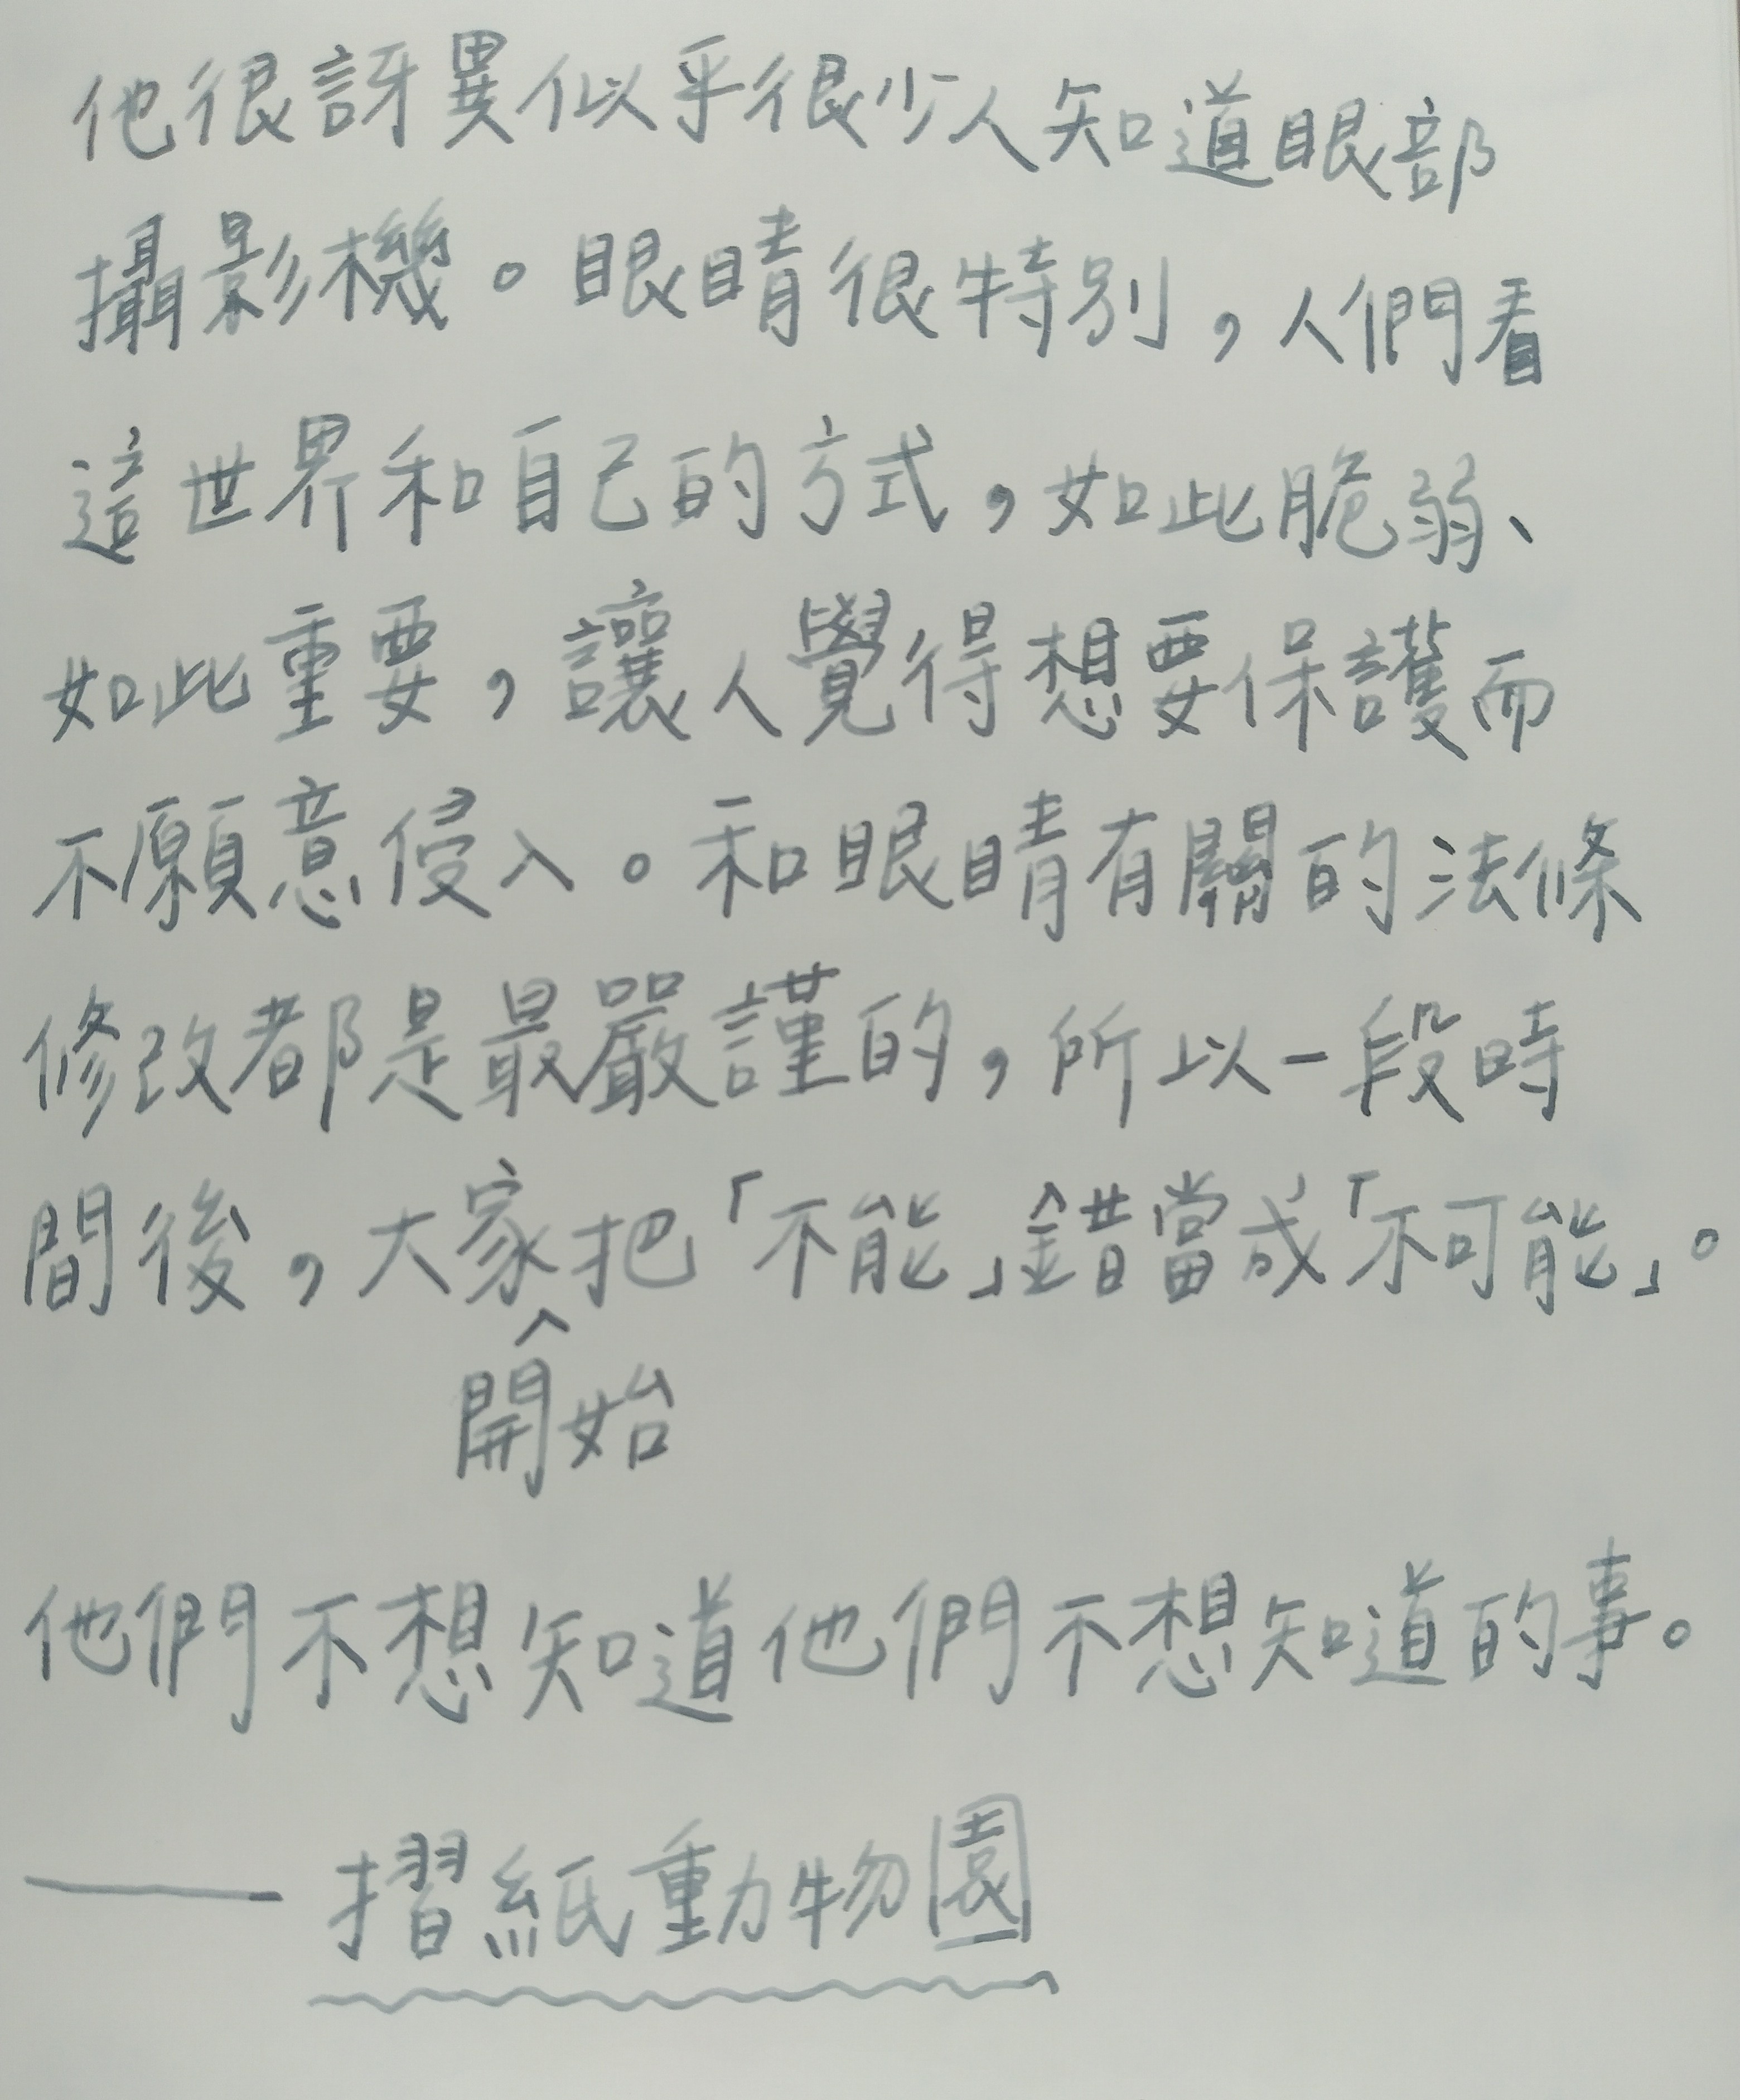 他很訝異似乎很少人知道眼部
攝影機。眼睛很特別，人們看
這世界和自己的方式，如此脆弱、
如此重要，讓人覺得想要保護而
不願意侵入。和眼睛有關的法條
修改都是最嚴謹的，所以一段時
間後，大家把「不能」錯當成「不可能」。
^
開始
他們不想知道他們不想知道的事。
——摺紙動物園